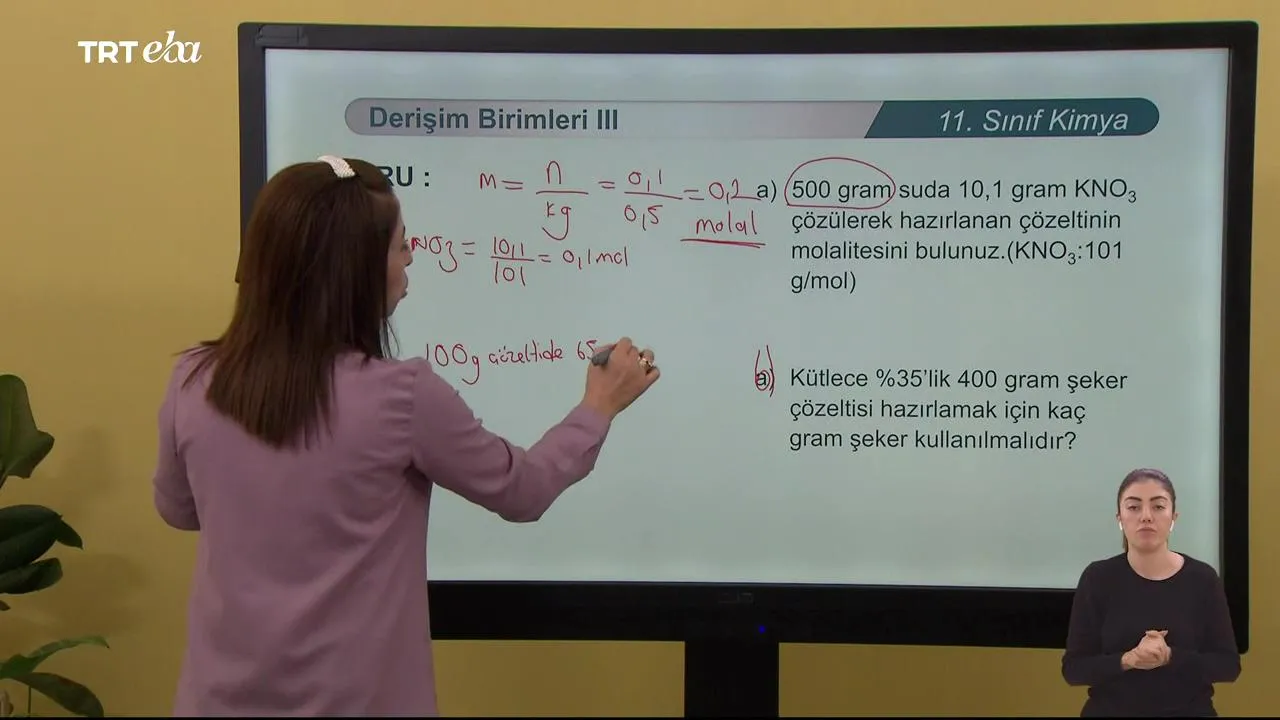 TRT eba
Derişim Birimleri III
11. Sınıf Kimya
RU :
m = n / kg = 0,1 / 0,5 = 0,2
molal
NO3 = 10,1 / 101 = 0,1 mol
100g çözeltide 65
a) 500 gram suda 10,1 gram KNO3
çözülerek hazırlanan çözeltinin
molalitesini bulunuz.(KNO3:101
g/mol)
b) Kütlece %35'lik 400 gram şeker
çözeltisi hazırlamak için kaç
gram şeker kullanılmalıdır?